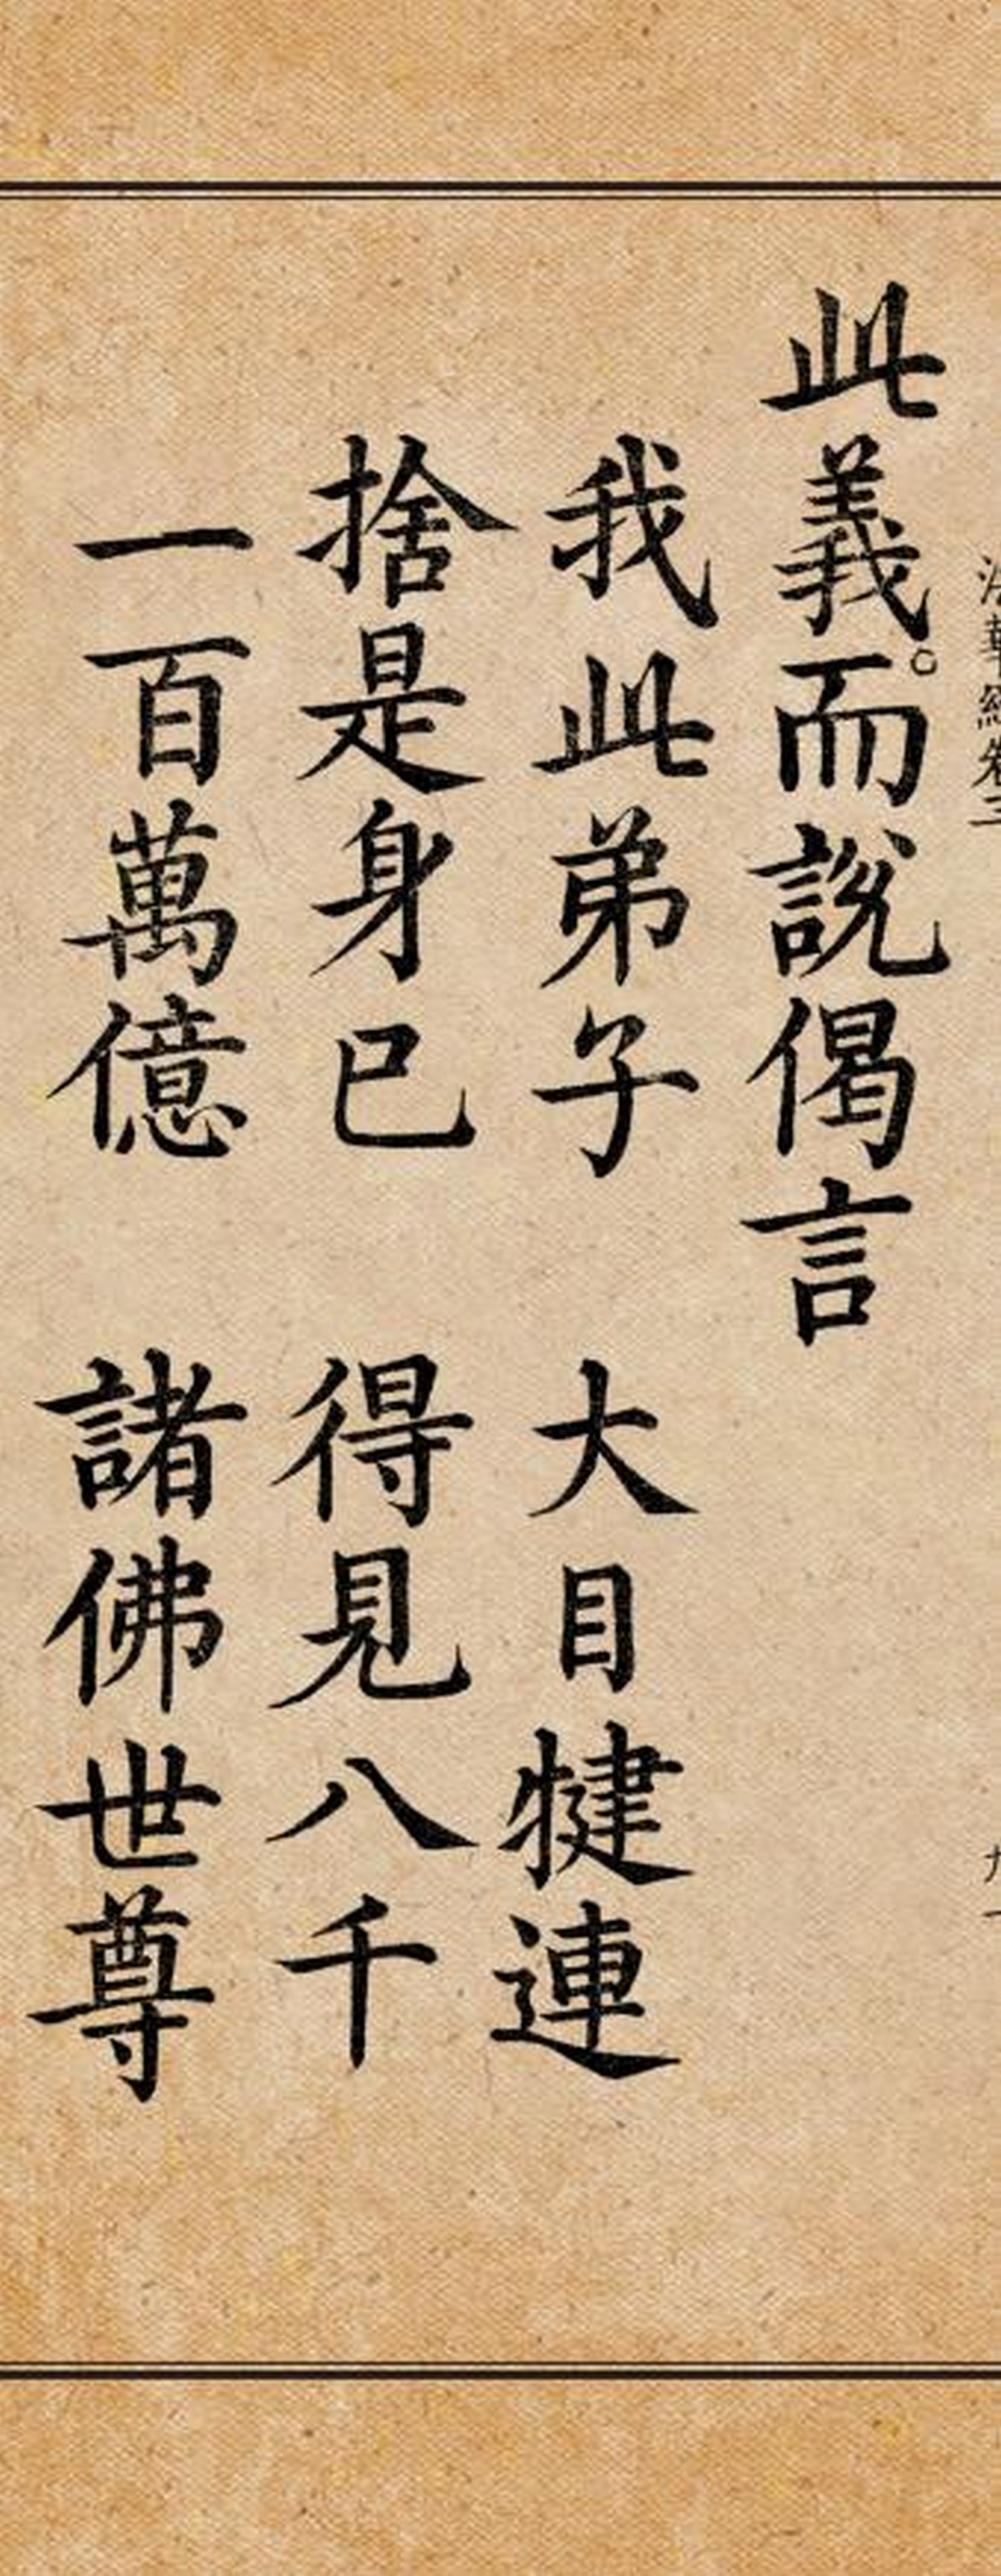 法華經卷三
此義。而說偈言
我此弟子 大目犍連
捨是身已 得見八千
一百萬億 諸佛世尊